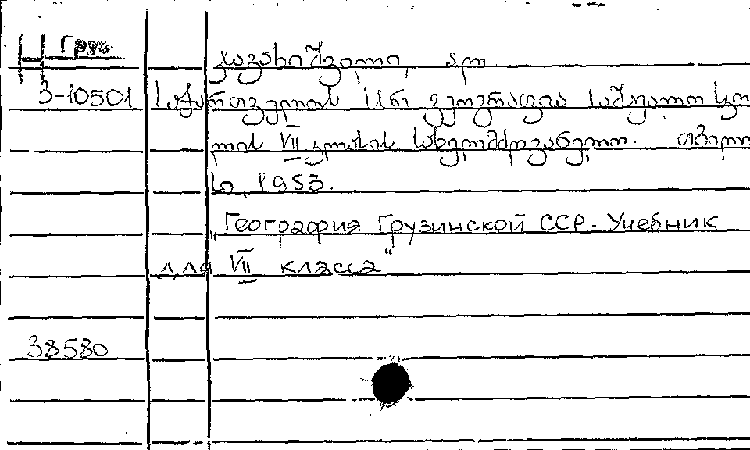 Груз
ჯავახიშვილი, ალ.
3-10501 საქართველოს სსრ გეოგრაფია საშუალო სკო
ლის VII კლასის სახელმძღვანელო. თბილი
სი, 1953.
"География Грузинской ССР. Учебник
для VII класса"
38580